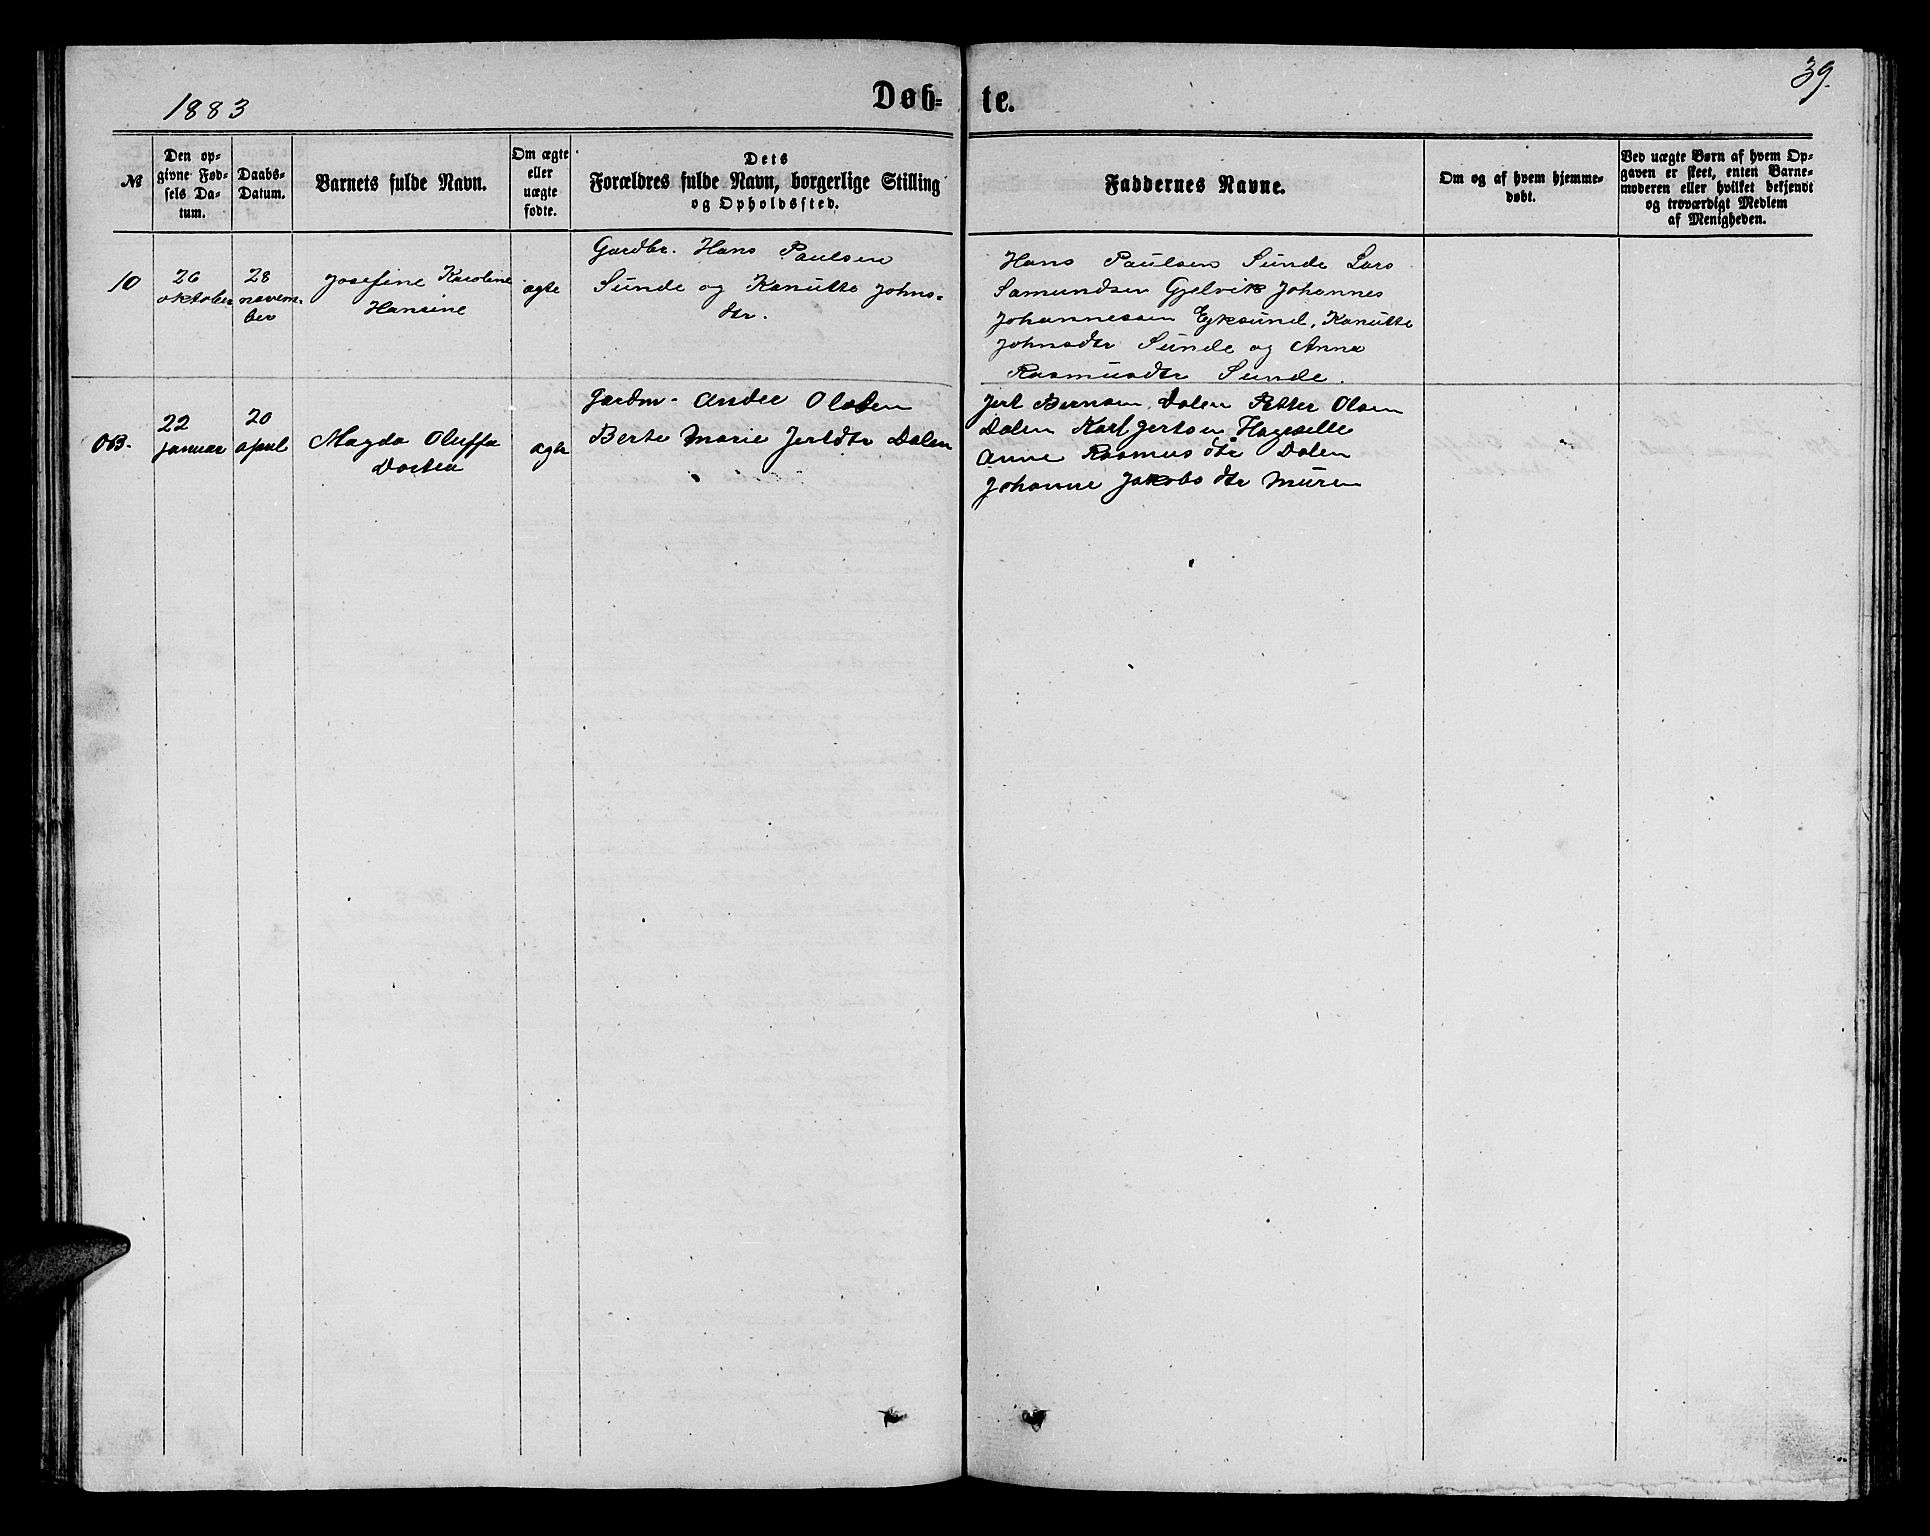 1883
Døb-te.
39.
№
Den op-
givne Fød-
sels Da-
tum.
Daabs-
Datum.
Barnets fulde Navn.
Om ægte
eller
uægte
fødte.
Dets
Forældres fulde Navn, borgerlige Stilling
og Opholdssted.
Faddernes Navne.
Om og af hvem hjemme-
døbt.
Ved uægte Børn af hvem Op-
gaven er skeet, enten Barne-
moderen eller hvilket bekjendt
og troværdigt Medlem
af Menigheden.
10
26
oktober
28
novem-
ber
Josefine Karoline
Hansine
ægte
Gardbr. Hans Paulsen
Sunde og Kanutte Johns-
dtr.
Hans Paulsen Sunde Lars
Samundsen Gjelvik Johannes
Johannessen Eyksund, Kanutte
Johnsdtr Sunde og Anna
Rasmusdtr Sunde.
OB.
22
januar
20
april
Magda Oluffa
Dortea
ægte
Gardm. Andre Olsen
Berte Marie Jertdtr Dalen
Jert Bernsen Dalen Petter Olsen
Dalen Karl Jertsen Hageselle
Anne Rasmusdtr Dalen
Johanne Jakobsdtr Muren